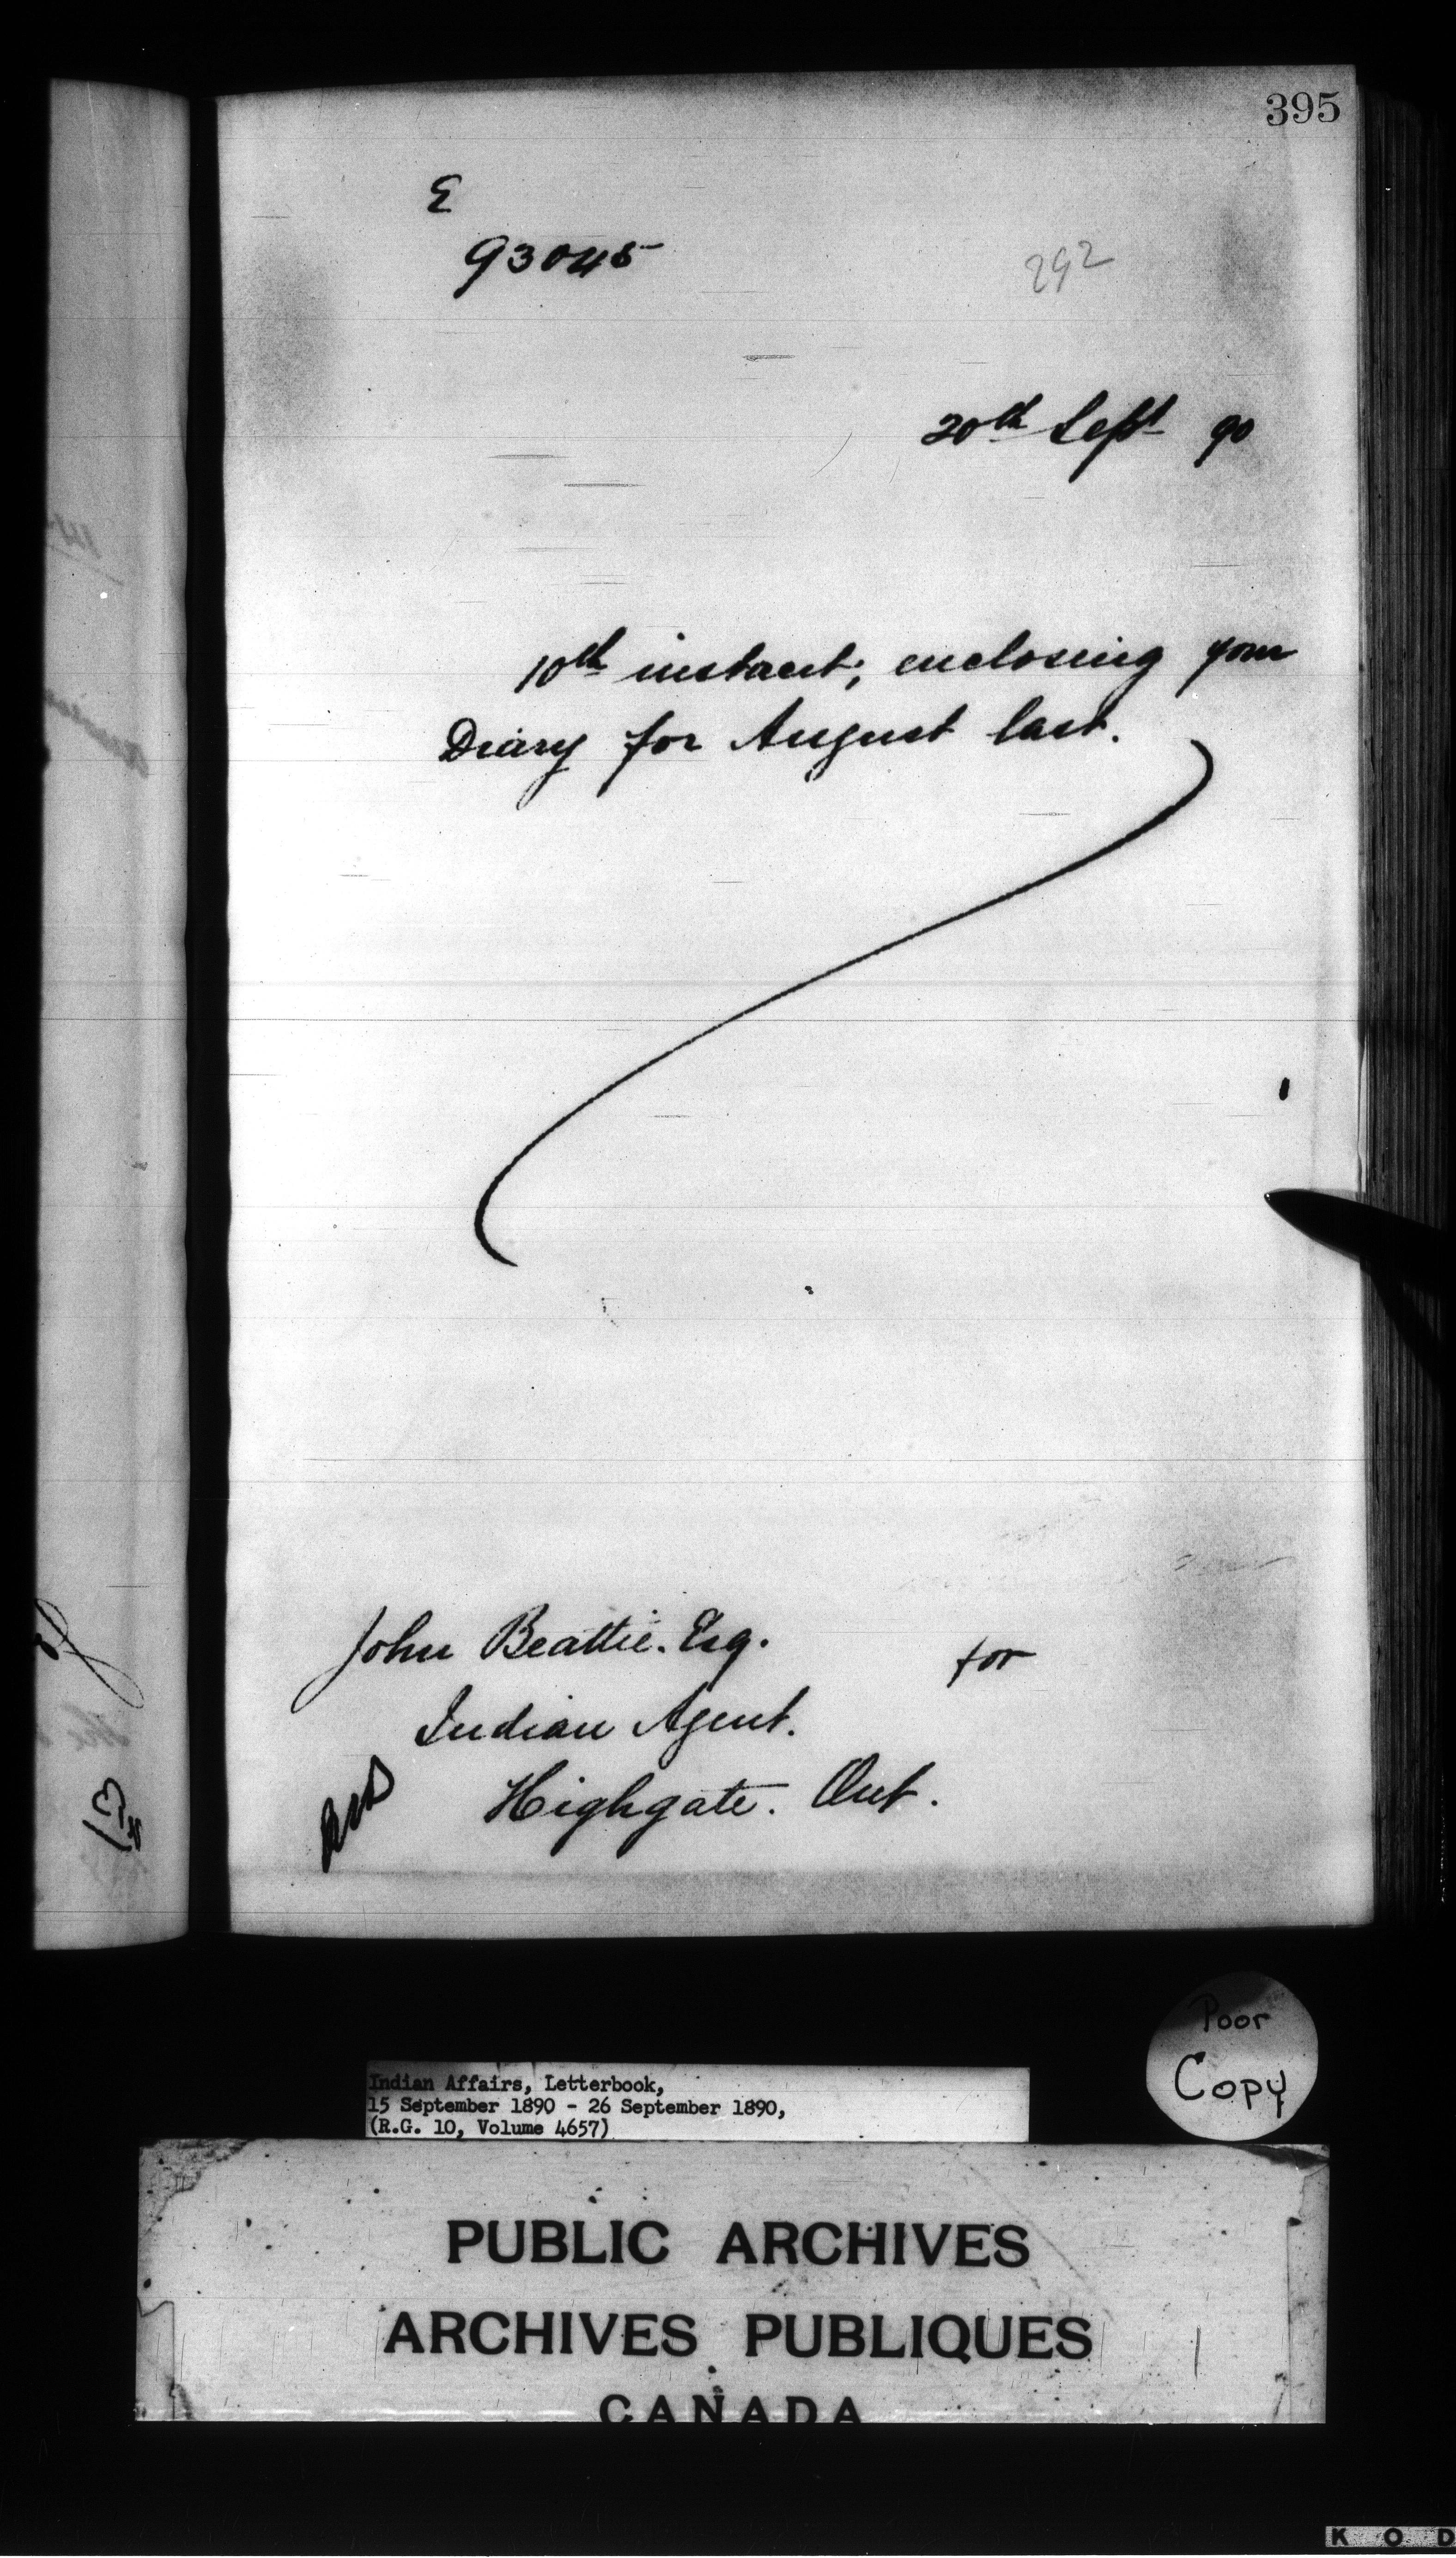 395
E
93045
292
20th Sept 90
10th instant; enclosing your
Diary for August last.
John Beattie. Esq.
for
Indian Agent.
Highgate. Ont.
Poor
Copy
Indian Affairs, Letterbook,
15 September 1890 - 26 September 1890,
(R.G. 10, Volume 4657)
PUBLIC ARCHIVES
ARCHIVES PUBLIQUES
CANADA
K O D